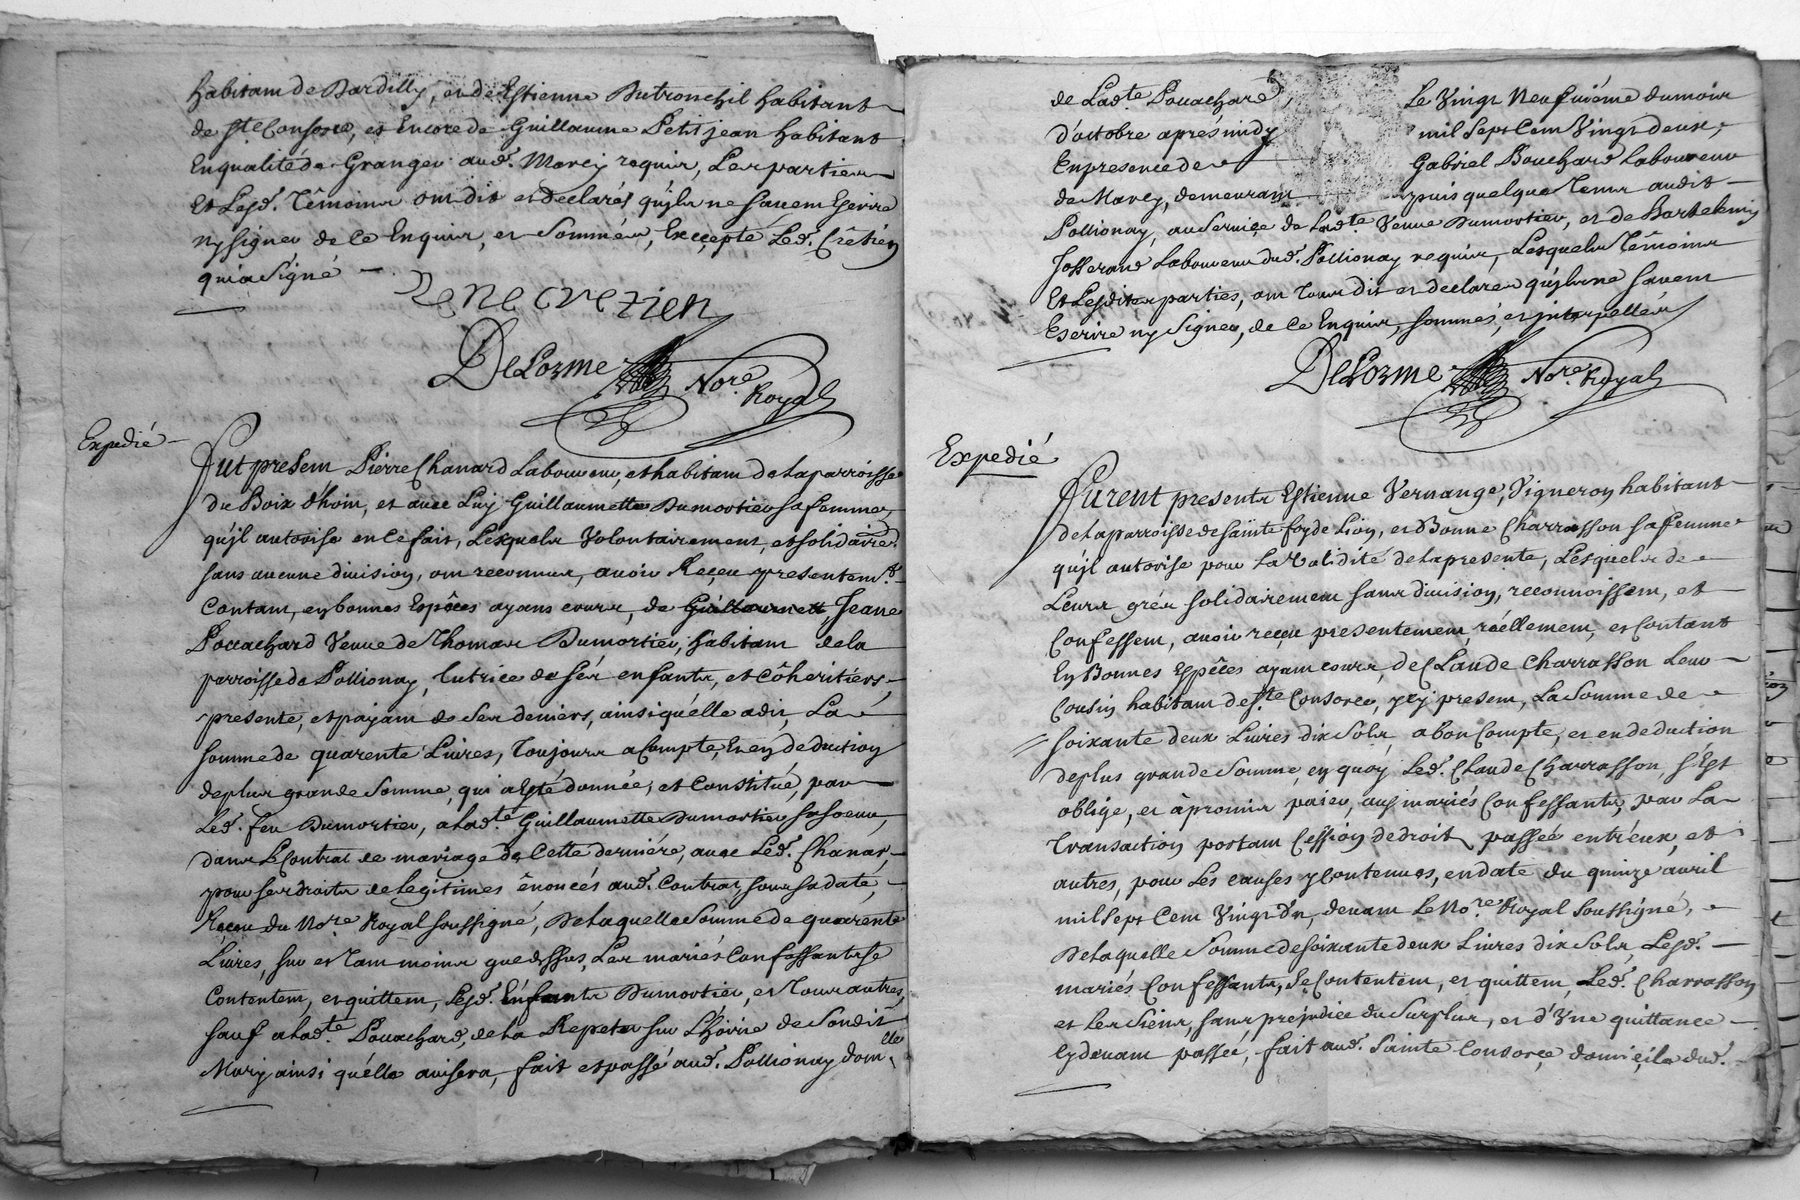 habitant de Dardilly, et de Estienne Dutronchil habitant
de Ste Consorce, et Encore de Guillaume Petitjean habitant
En qualité de Granger aud. Marcy requis, Les parties
Et Lesd. Témoins ont dit et declarés qu'ils ne savent Escrire
ny signer de ce Enquis, et Sommés, Excepté Led. Crétien
qui a Signé
Rene cretien
DeLorme Nore Royal
Expedié
Fut present Pierre Chanard Laboureur, et habitant de La parroisse
du Bois d'hoin, et avec Luy Guillaumette Dumortier sa femme,
qu'il autorise en ce fait, Lesquels Volontairement, et solidaire.t
sans aucune division, ont reconnus, avoir Reçeu presentem.t
Contant, en bonnes Espêces ayans cours, de Guillaumett Jeane
Pouachard Veuve de Thomas Dumortier, habitant de la
parroisse de Pollionay, tutrice de sés enfants, et côheritiers,
presente, et payant de Ses deniers, ainsi qu'elle a dit, La
somme de quarente Livres, Toujours a Compte, Et en deduction
de plus grande Somme, qui a Esté donnée, et Constitué, par
Led. feu Dumortier, a lad.te Guillaumette Dumortier sa soeur,
dans Le Contrat de mariage de Cette derniére, avec Led. Chanar,
pour ses droits de Legitimes énoncés aud. Contrat, sous sa date,
Reçeu du No.re Royal soussigné, De laquelle Somme de quarente
Livres, sur et Tant moins que dessus, Les mariés Confessants se
Contentent, et quittent, Lesd. Enfants Dumortier, et Tous autres,
sauf a lad.te Pouachard, de la Repeter sur L'hoirie de Sondit
Mary ainsi qu'élle avisera, fait et passé aud. Pollionay dom.lle
de Lad.te Pouachard, Le Vingt Neufviéme du mois
d'octobre aprés midy mil Sept Cent Vingt deux,
En presence de Gabriel Bouchard Laboureur
de Marcy, demeurant depuis quelque Tems audit
Pollionay, au Service de Lad.te Veuve Dumortier, et de Bartelemy
Josserand Laboureur dud. Pollionay requis, Lesquels Témoins
Et Lesdites parties, ont Tous dit et declarer qu'ils ne savent
Escrire ny Signer, de ce Enquis, sommés, et interpellés
DeLorme Nore Royal
Expedié
Furent presents Estienne Vernange, Vigneron habitant
de La parroisse de Sainte foy de Lion, et Bonne Charrasson sa femme
qu'il autorise pour La Validité de La presente, Lesquels de
Leurs grés solidairement sans division, reconnoissent, et
Confessent, avoir reçeu presentement, réellement, et Contant
En Bonnes Espêces ayant cours, de Claude Charrasson Leur
Cousin habitant de Ste Consorce, ycy present, La Somme de
soixante deux Livres dix Sols a bon Compte, et en deduction
de plus grande Somme, en quoy Led. Claude Charrasson, s'Est
obligé, et à promis païer, aus mariés Confessants, par La
Transaction portant Cession de droit, passée entr'eux, et
autres, pour Les causes y Contenues, en date du quinze avril
mil Sept Cent Vingt Un, devant Le No.re Royal Soussigné,
De laquelle Somme de soixante deux Livres dix Sols, Lesd.
mariés Confessants, Se Contentent, et quittent, Led. Charrasson
et Les Siens, sans prejudice du Surplus, et d'Une quittance
cy devant passée, fait aud. Sainte Consorce, domicile dud.